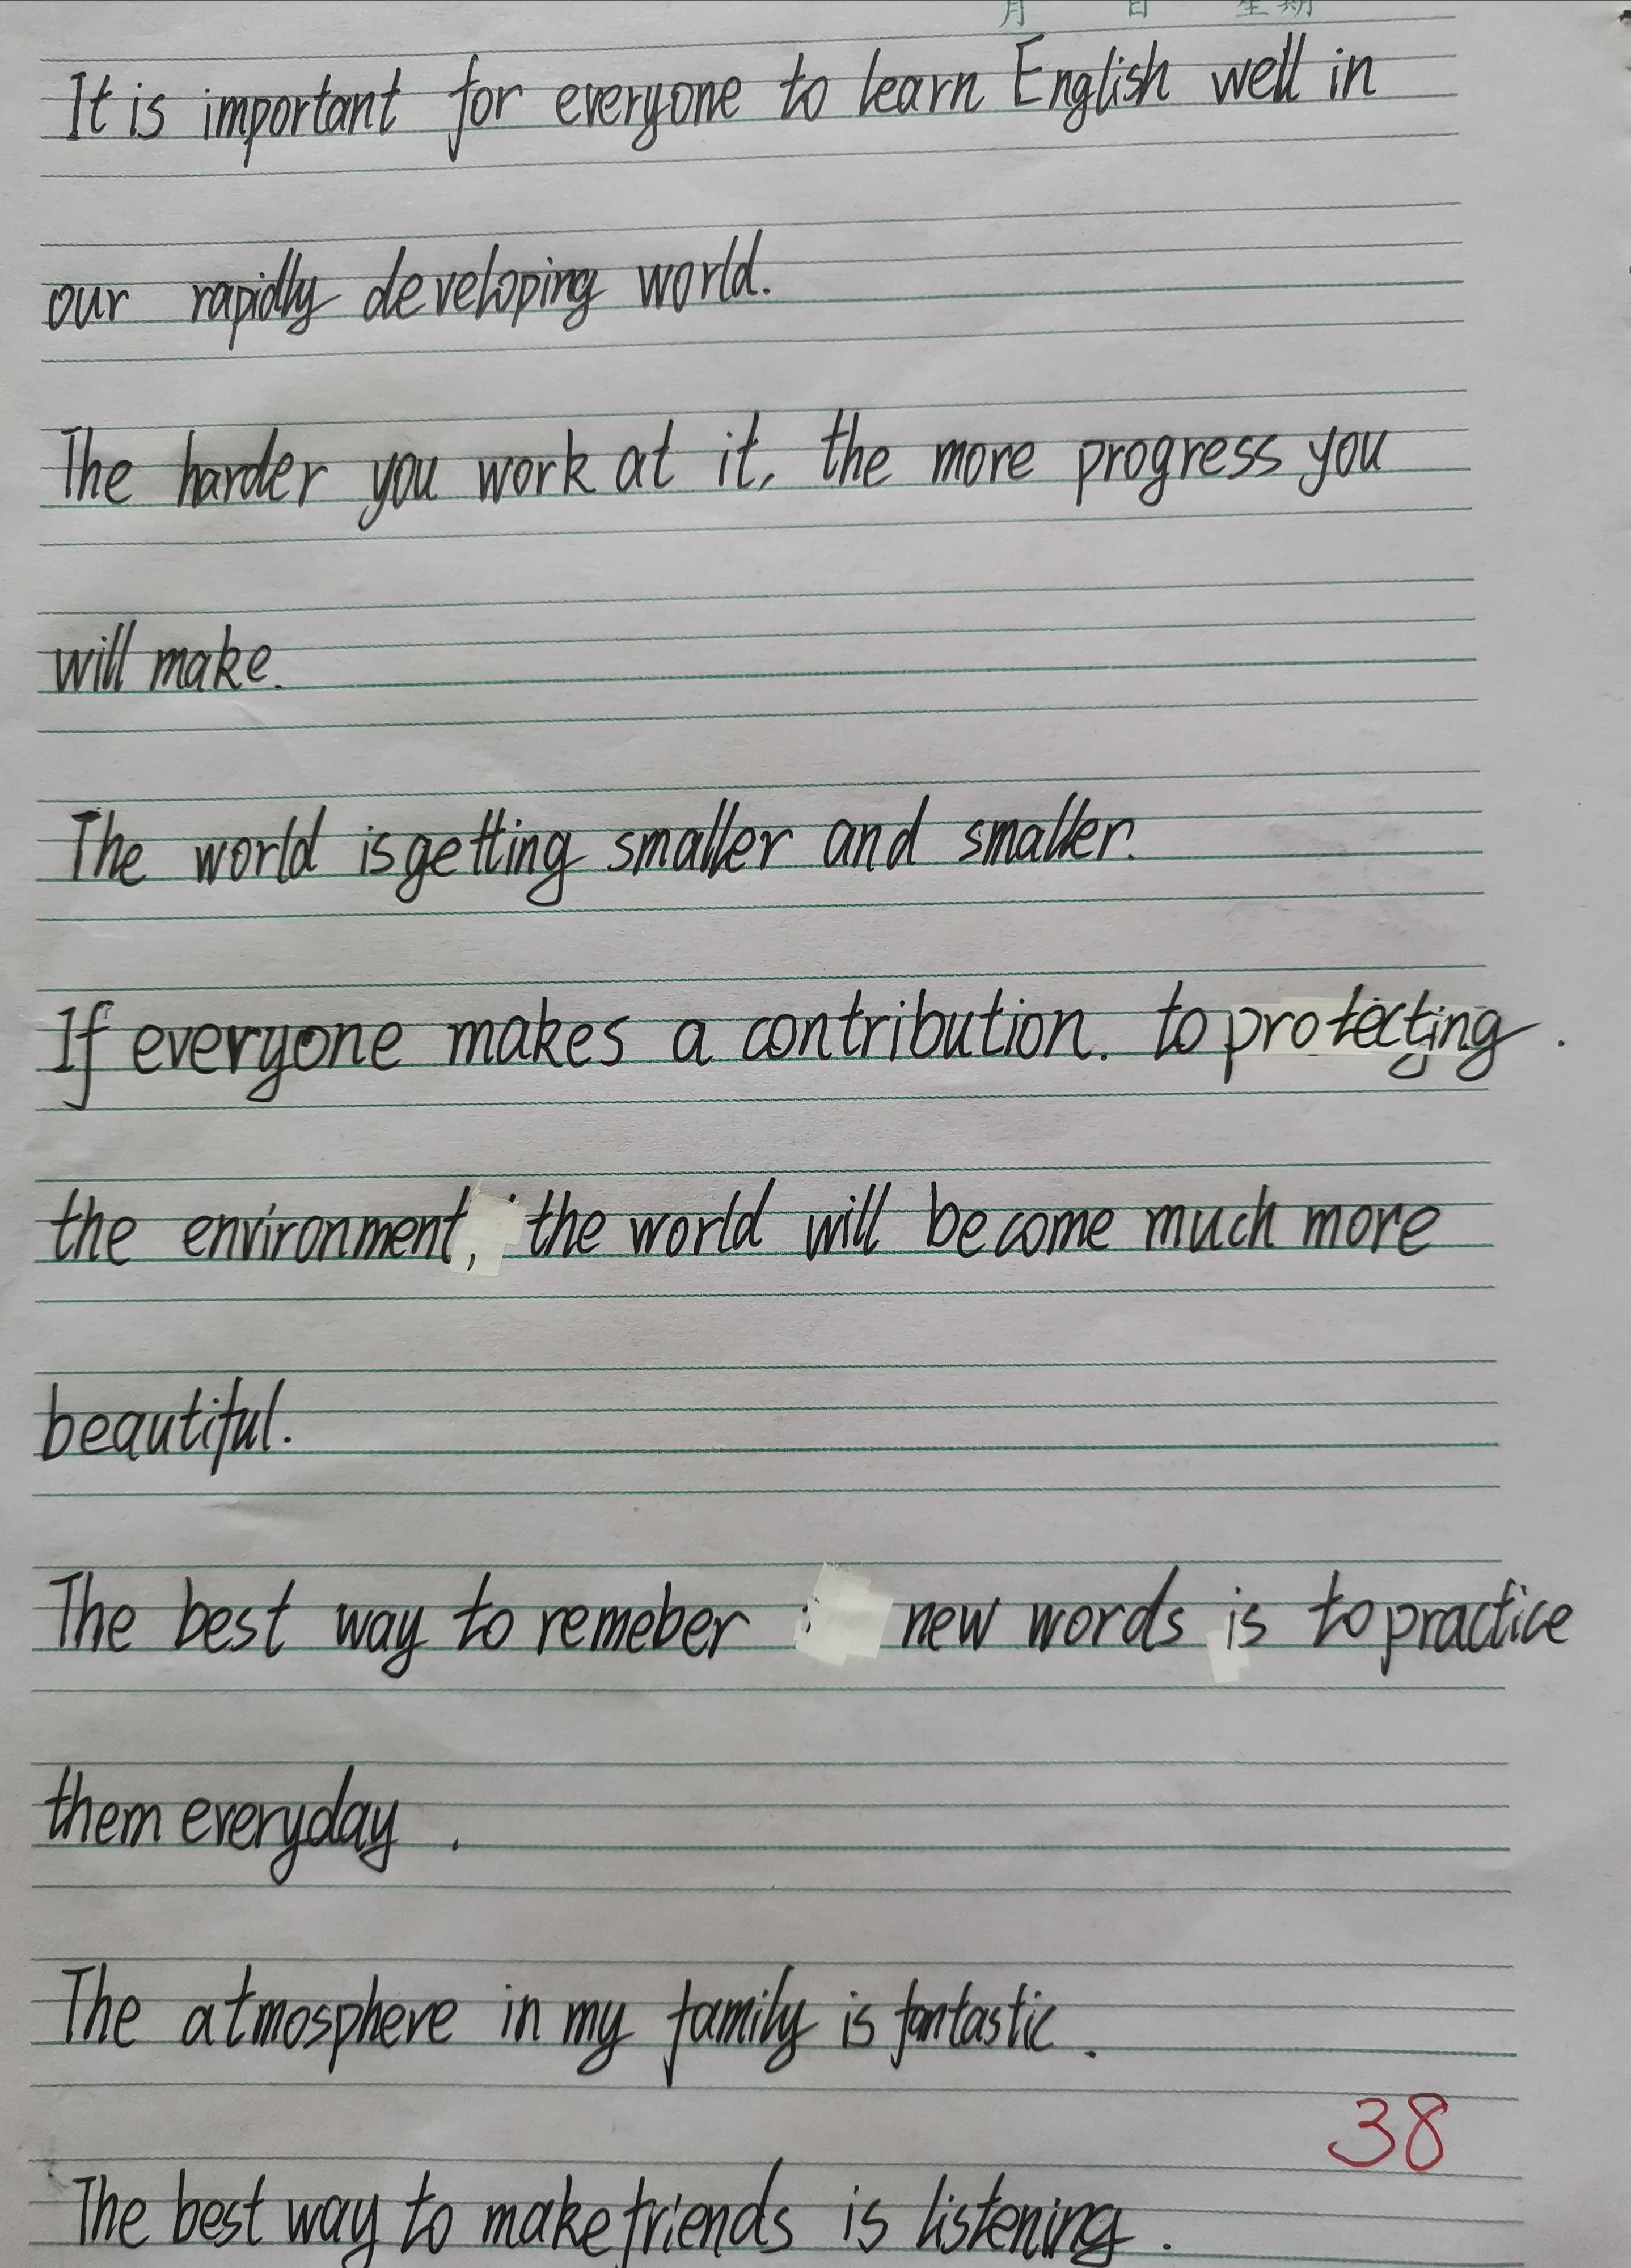 月 日 星期
It is important for everyone to learn English well in
our rapidly developing world.
The harder you work at it, the more progress you
will make.
The world is getting smaller and smaller.
If everyone makes a contribution. to protecting .
the environment, the world will become much more
beautiful.
The best way to remeber new words is to practice
them everyday .
The atmosphere in my family is fantastic .
38
The best way to make friends is listening .